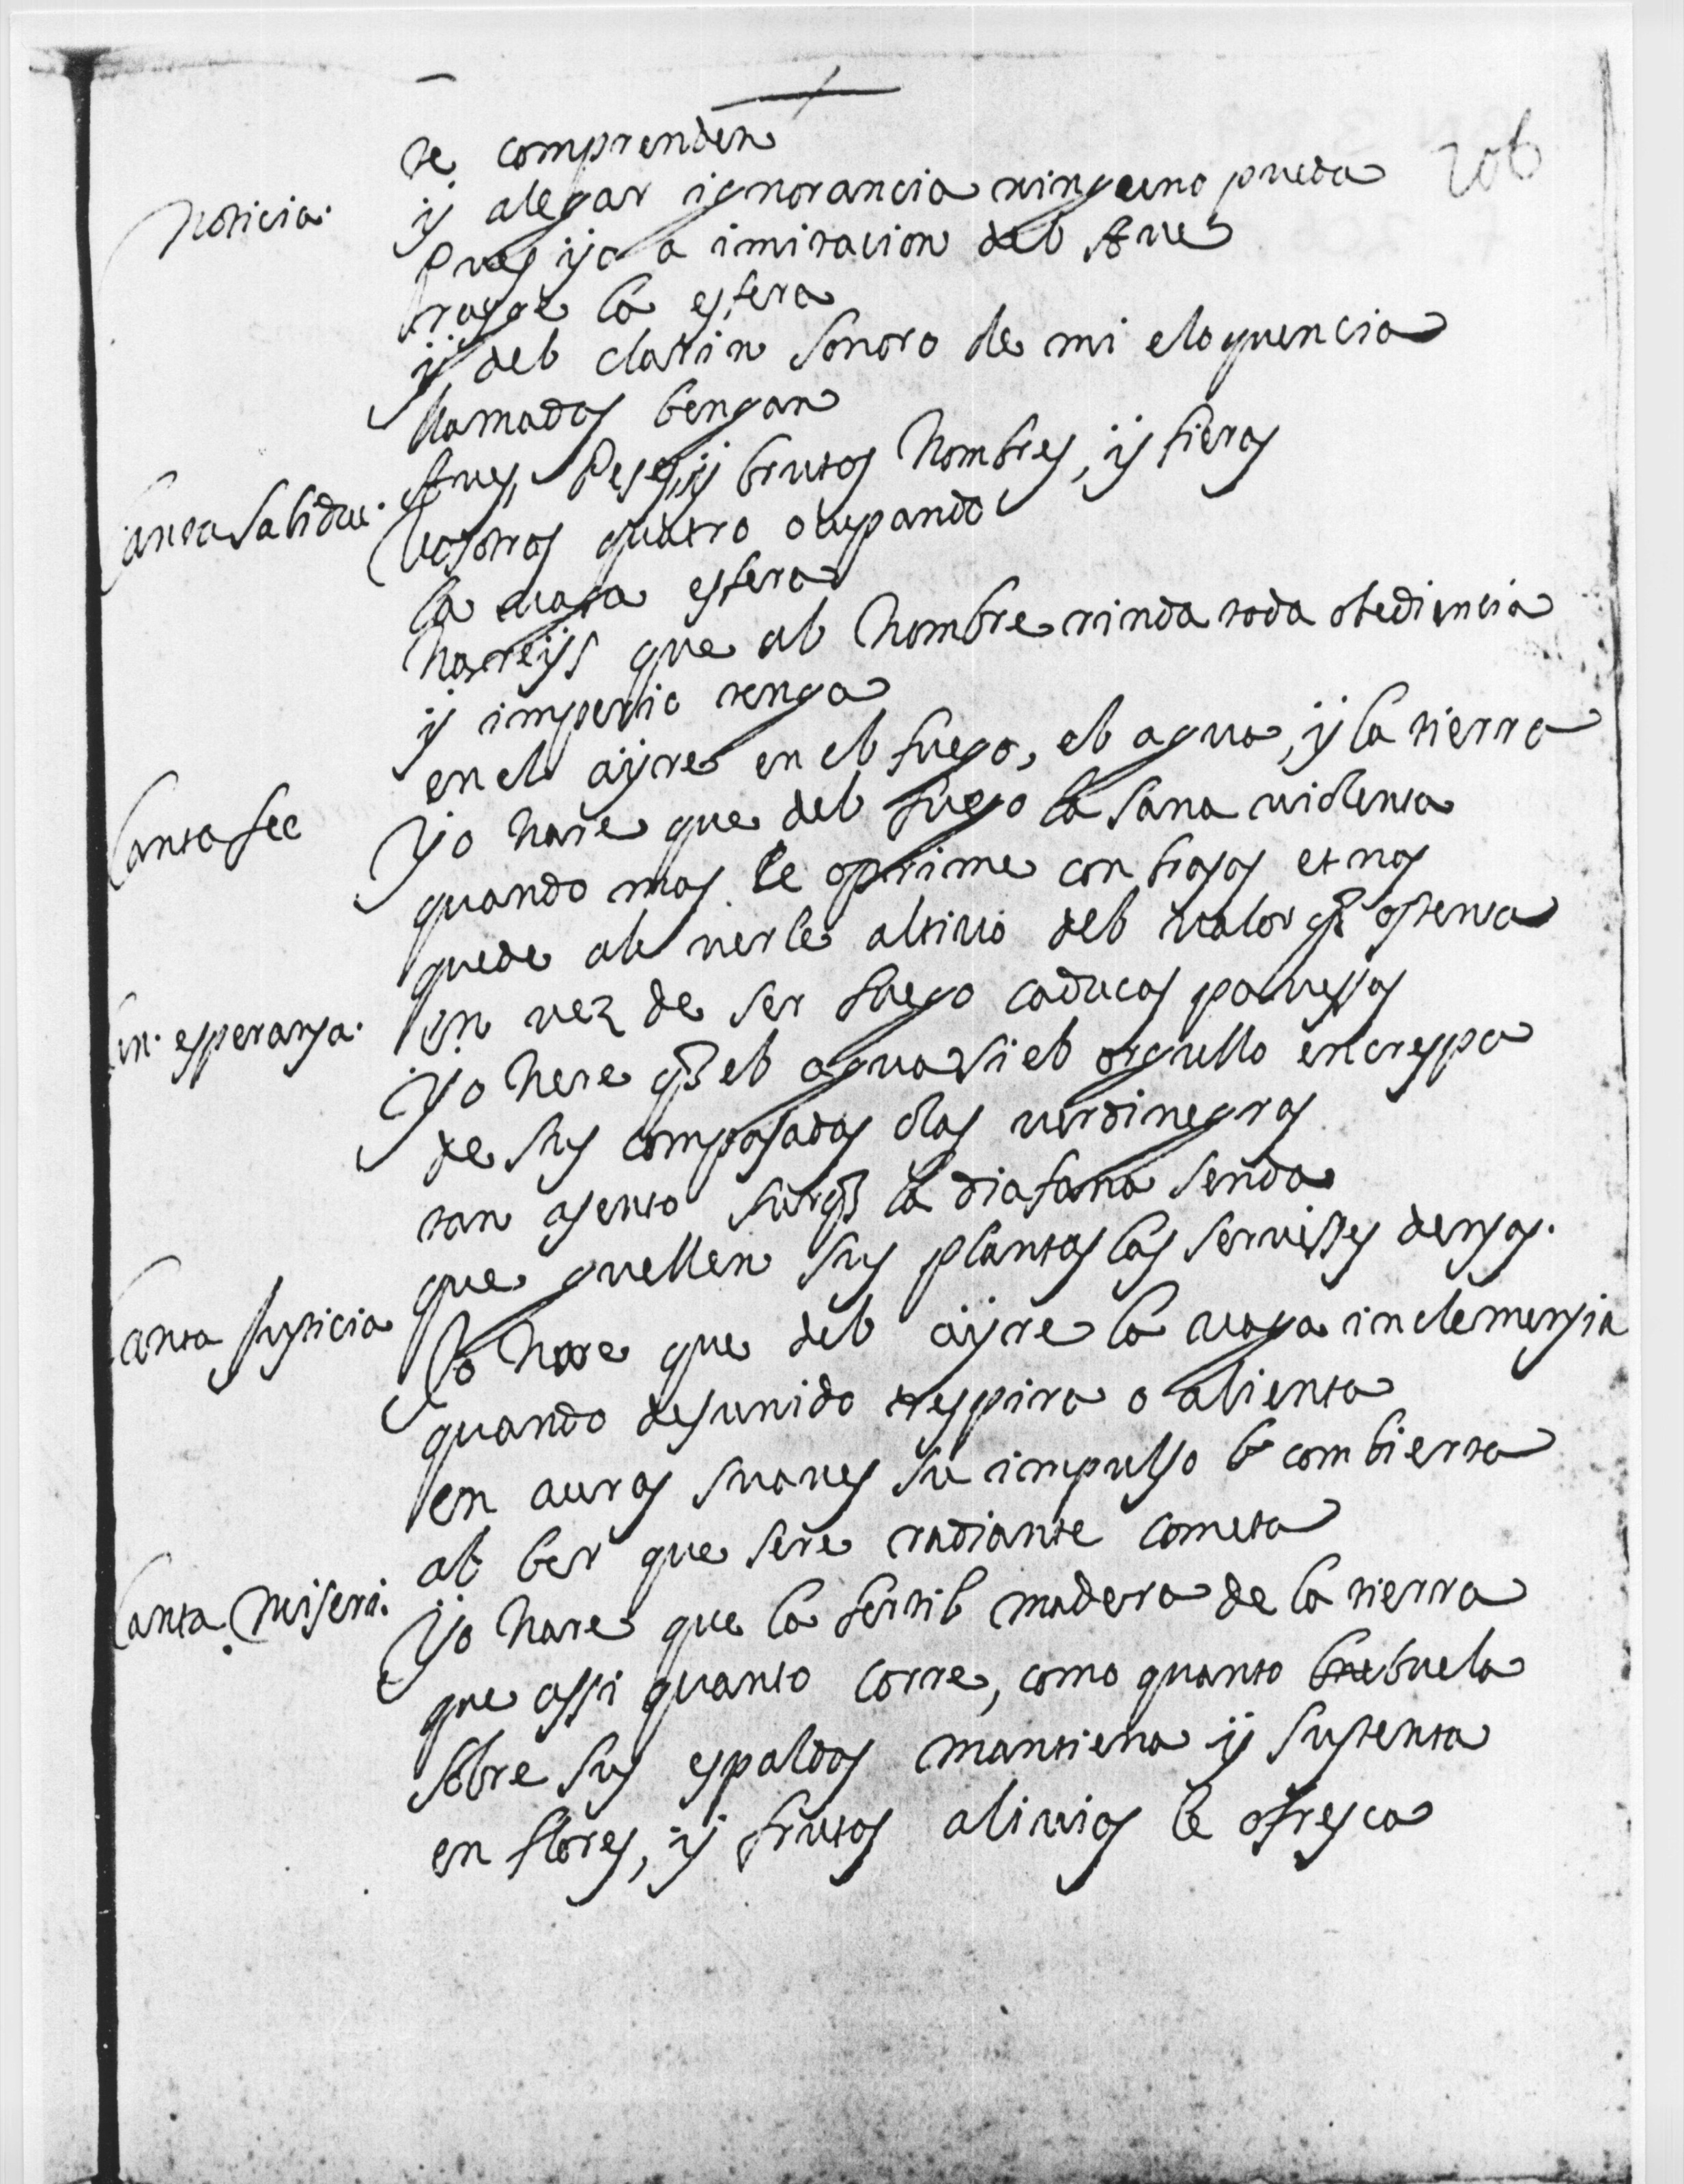 206
se comprenden
y alegar ignorancia ninguno pueda
Noticia. Pues yo a imitacion del Ave
la esfera
y del clarin sonoro de mi eloquencia
llamados bengan
Aues, Peses, y brutos hombres, y fieras
Canta Sabidu. Vosotros quatro ocupando
la vaga esfera
hareys que al hombre rinda toda obediencia
y imperio tenga
en el ayre en el fuego, el agua, y la tierra
Canta fee Yo hare que del fuego la sana violenta
quando mas le oprime con brasas etnas
quede al verle altivo del valor q̃ ostenta
en vez de ser fuego caducas pavessas
Can. esperansa. Yo hare q̃ el agua si el orgullo encrespa
de sus compasadas olas verdinegras
tan atento surq̃ la diafana senda
que huellen sus plantas las servisses densas.
Canta Justicia Yo hare que del ayre la vaga inclemensia
quando desunido respira o alienta
en auras suaves su impulso le combierta
al ber que sere radiante cometa
Canta Miseri. Yo hare que la fertil madera de la tierra
que assi quanto corre, como quanto buela
sobre sus espaldas mantiene y sustenta
en flores, y frutos alivios le ofresca